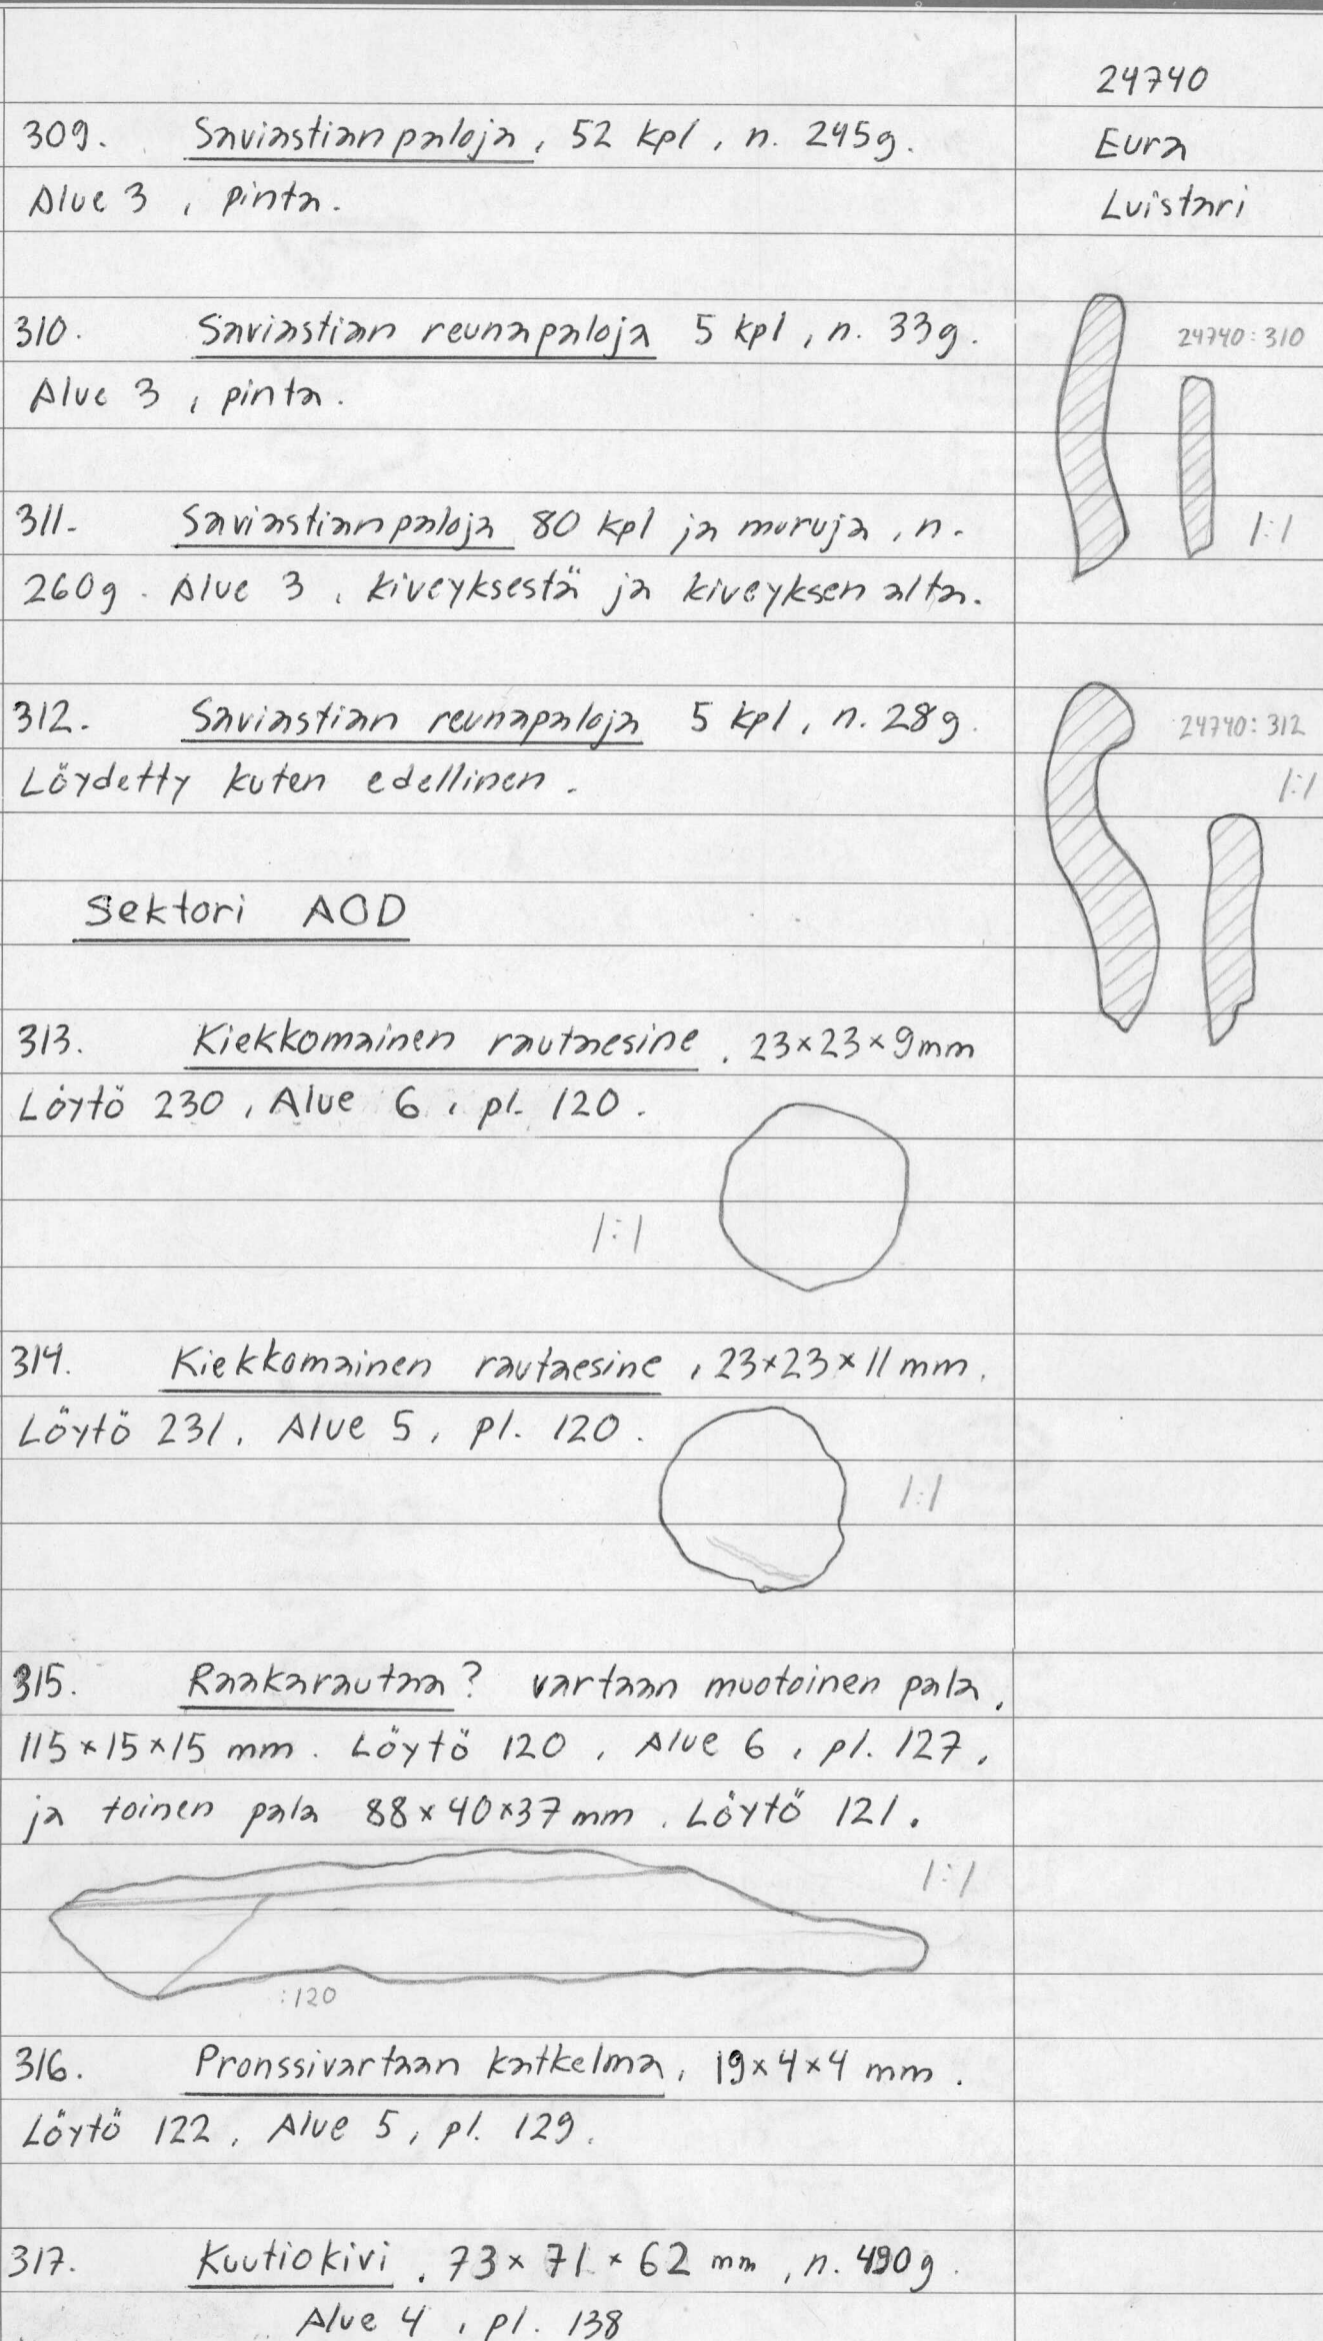 24740
Eura
Luistari
309. Saviastianpaloja, 52 kpl, n. 245g.
Alue 3, pinta.
310. Saviastian reunapaloja 5 kpl, n. 33g.
Alue 3, pinta.
24740:310
1:1
311. Saviastianpaloja 80 kpl ja muruja, n.
260g. Alue 3, kiveyksestä ja kiveyksen alta.
312. Saviastian reunapaloja 5 kpl, n. 28g.
Löydetty kuten edellinen.
24740:312
1:1
Sektori AOD
313. Kiekkomainen rautaesine. 23×23×9mm
Löytö 230, Alue 6, pl. 120.
1:1
314. Kiekkomainen rautaesine, 23×23×11mm.
Löytö 231, Alue 5, pl. 120.
1:1
315. Raakarautaa? vartaan muotoinen pala,
115×15×15 mm. Löytö 120, Alue 6, pl. 127,
ja toinen pala 88×40×37mm. Löytö 121.
1:1
:120
316. Pronssivartaan katkelma, 19×4×4 mm.
Löytö 122, Alue 5, pl. 129.
317. Kuutiokivi. 73×71×62 mm, n. 490g.
Alue 4, pl. 138